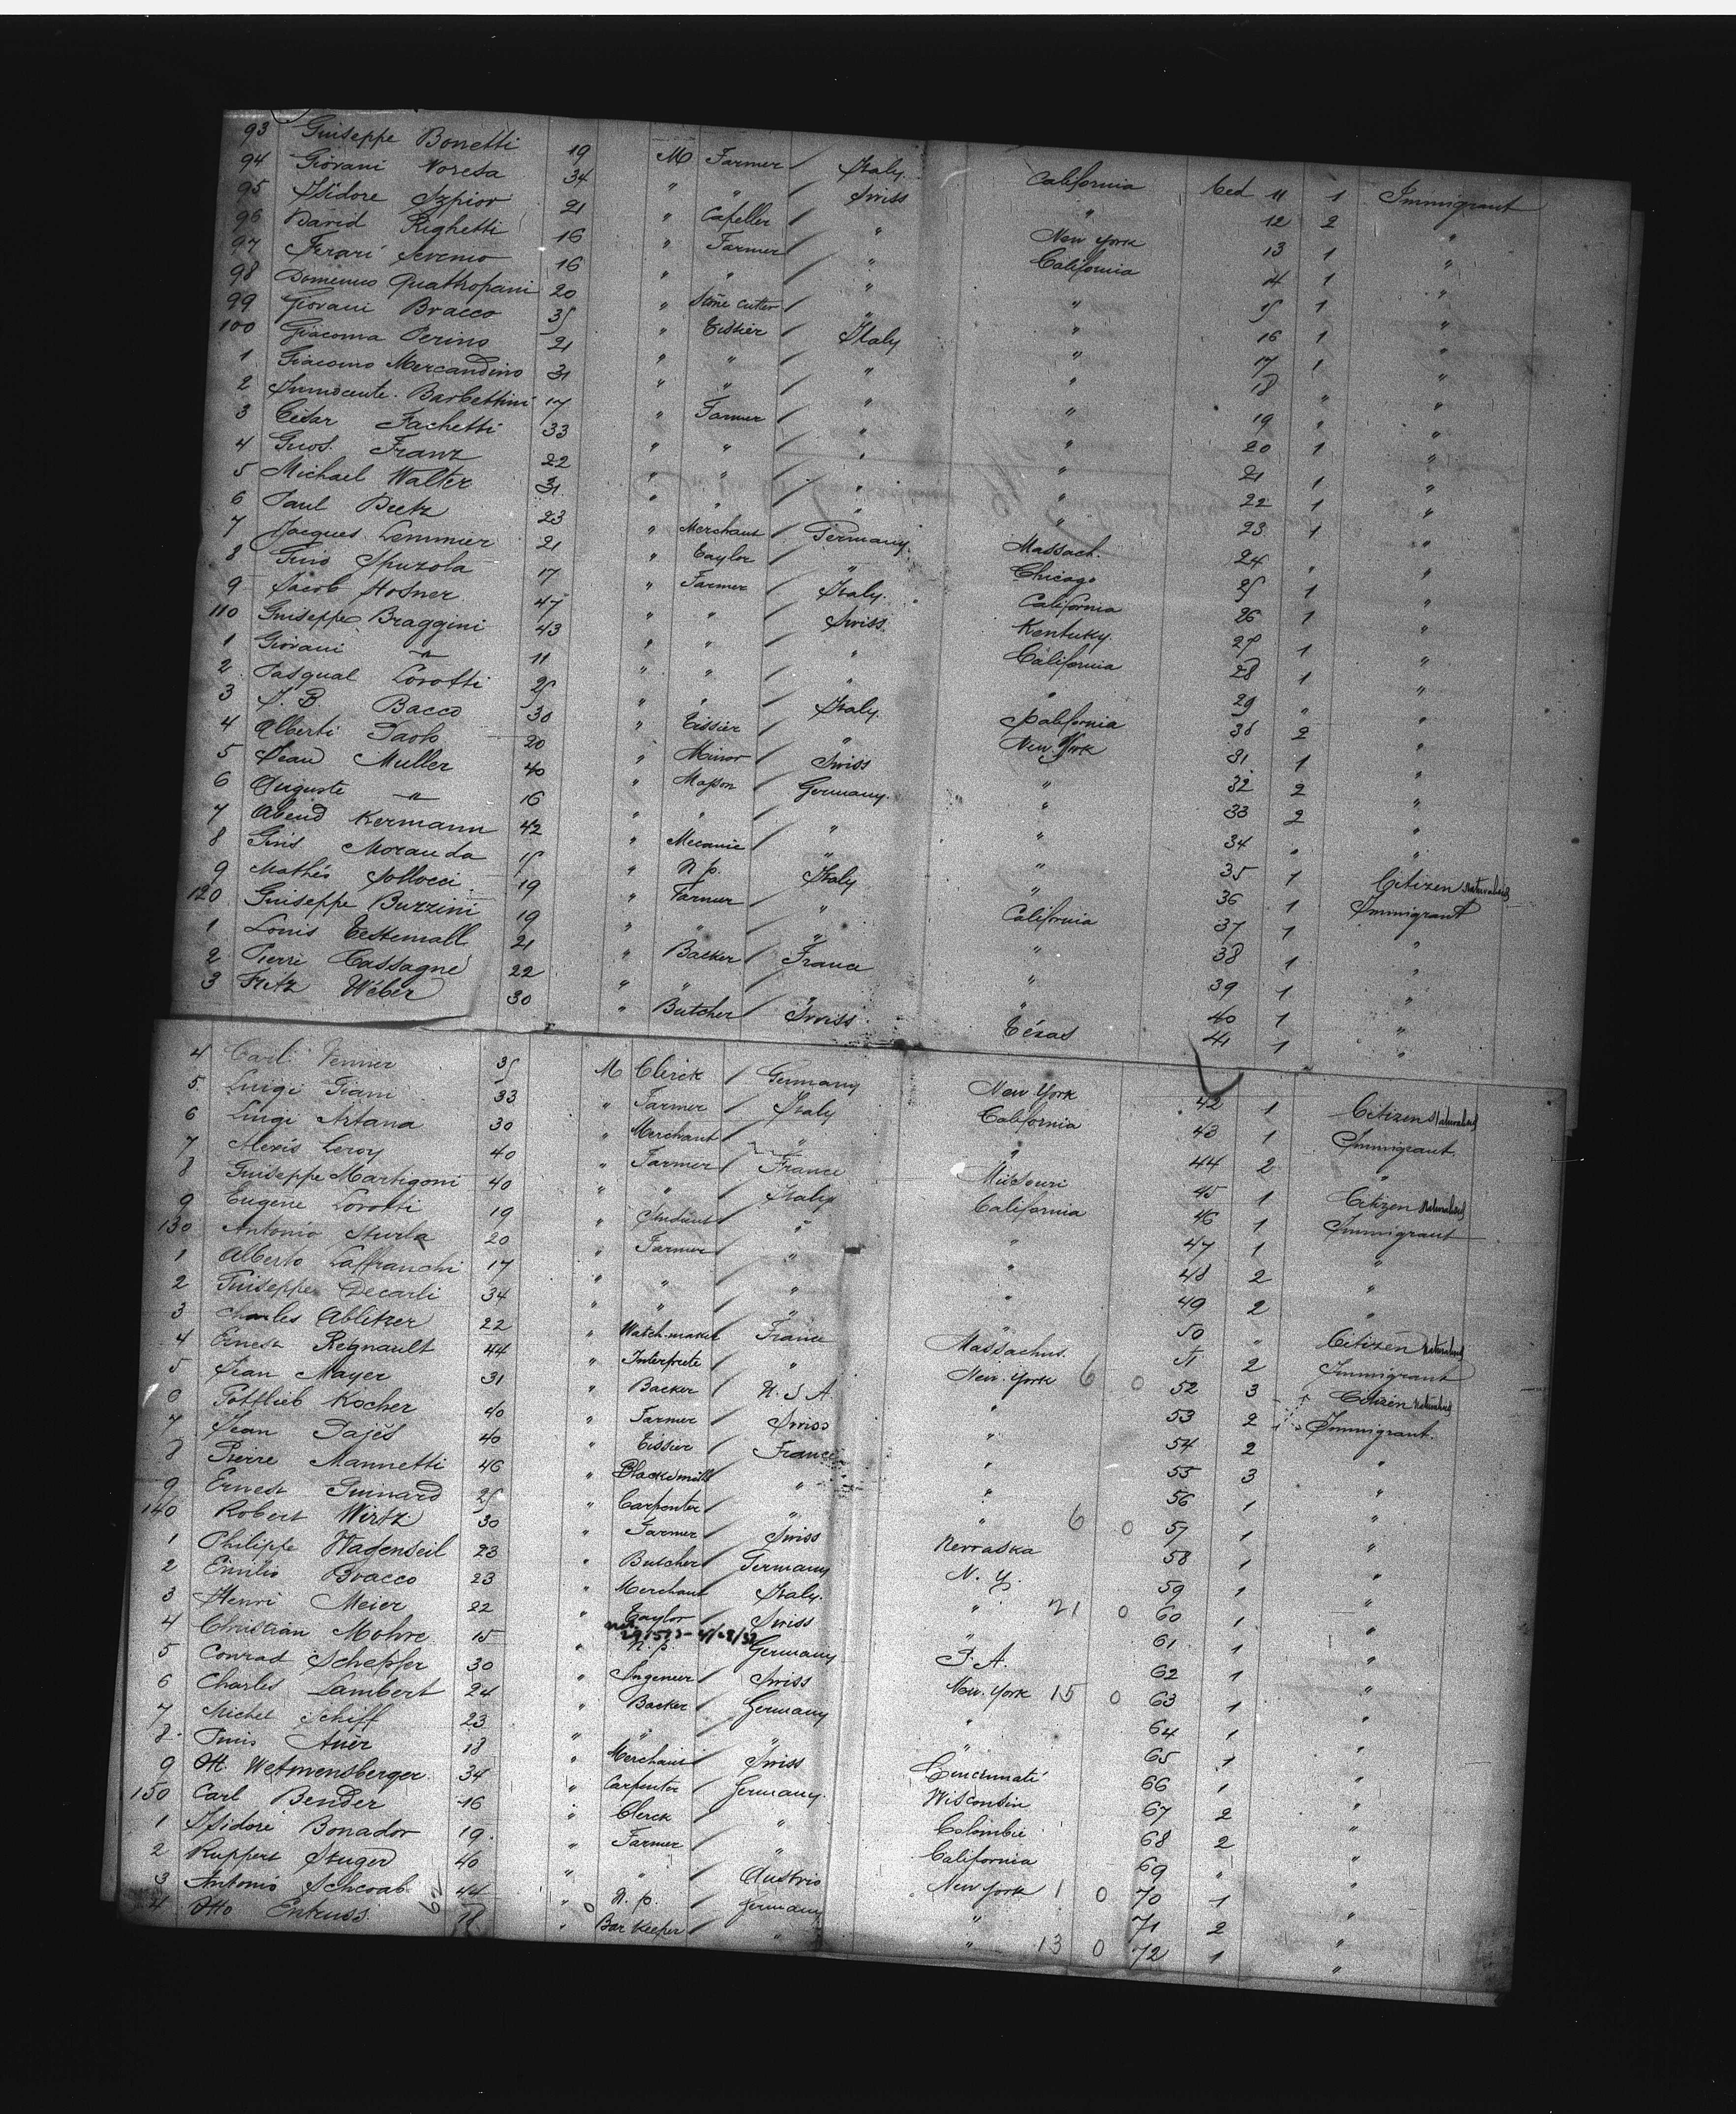 93 Guiseppe Bonetti 19 M Farmer / Italy California bed 11 1 Immigrant
94 Giovani Noresa 34 " " / Swiss " 12 2 "
95 Isidore Szpior 21 " Capeller / " New York 13 1 "
96 David Righetti 16 " Farmer / " California 14 1 "
97 Ferari Severino 16 " " / " " 15 1 "
98 Domenico Quattropani 20 " Stone cutter / " " 16 1 "
99 Giovani Bracco 35 " Tissier / Italy " 17 1 "
100 Giacoma Perino 21 " " / " " 18 " "
1 Giacomo Mercandino 31 " " / " " 19 " "
2 Innocente Barbettini 17 " Farmer / " " 20 1 "
3 César Fachetti 33 " " / " " 21 1 "
4 Franz 22 " " / " " 22 1 "
5 Michael Walter 31 " " / " " 23 1 "
6 Paul Beetz 23 " Merchant / Germany Massach. 24 " "
7 Jacques Lemmier 21 " Taylor / " Chicago 25 1 "
8 Spuzola 17 " Farmer / Italy California 26 1 "
9 Jacob Hosner 47 " " / Swiss Kentuky 27 1 "
110 Guiseppe Braggini 43 " " / " California 28 1 "
1 Giovani " 11 " " / " " 29 " "
2 Pasqual Lorotti 25 " " / Italy California 30 2 "
3 J. B Bacco 30 " Tissier / " New York 31 1 "
4 Alberti Paolo 20 " Minor / Swiss " 32 2 "
5 Jean Muller 40 " Masson / Germany " 33 2 "
6 Auguste " 16 " " / " " 34 " "
7 Abend Kermann 42 " Mecanic / " " 35 1 Citizen Naturalized
8 Moranda 15 " N p. / Italy " 36 1 Immigrant
9 Mathéo Sollocci 19 " Farmer / " California 37 1 "
120 Guiseppe Buzzini 19 " " / " " 38 1 "
1 Louis Testemall 21 " Backer / France " 39 1 "
2 Pierre Cassagne 22 " " / " " 40 1 "
3 Fritz Wéber 30 " Butcher / Swiss Téxas 41 1 "
4 Carl Venner 35 M Clerck / Germany New York 42 1 Citizen Naturalized
5 Luigi Fiani 33 " Farmer / Italy California 43 1 Immigrant
6 Luigi Artana 30 " Merchant / " " 44 2 "
7 Alexis Leroy 40 " Farmer / France Missouri 45 1 Citizen Naturalized
8 Guiseppe Martigoni 40 " " / Italy California 46 1 Immigrant
9 Eugene Lorotti 19 " Student / " " 47 1 "
130 Antonio Sturla 20 " Farmer / " " 48 2 "
1 Alberto Laffranchi 17 " " / " " 49 2 "
2 Guiseppe Decarli 34 " " / " " 50 " Citizen Naturalized
3 Charles Ablitzer 22 " Watch-maker / France Massachus. 51 2 Immigrant
4 Ernest Regnault 44 " Interprete / " New-York 6 0 52 3 Citizen Naturalized
5 Jean Mayer 31 " Backer / U.S.A. " 53 2 Immigrant.
6 Gottlieb Kocher 40 " Farmer / Swiss " 54 2 "
7 Jean Pajès 40 " Tissier / France " 55 3 "
8 Pierre Mannetti 46 " Blacksmith / " " 56 1 "
9 Ernest Guinard 25 " Carpenter / " " 6 0 57 1 "
140 Robert Wirtz 30 " Farmer / Swiss Nerraska 58 1 "
1 Philippe Wagenseil 23 " Butcher / Germany N. Y. 59 1 "
2 Emilio Bracco 23 " Merchant / Italy. " 21 0 60 1 "
3 Henri Meier 22 " Taylor / Swiss " 61 1 "
4 Christian Mohre 15 " N. p. / Germany P. A. 62 1 "
5 Conrad Schepfer 30 " Ingeneer / Swiss New-York 15 0 63 1 "
6 Charles Lambert 24 " Backer / Germany " 64 1 "
7 Michel Schiff 23 " " / " " 65 1 "
8 Auèr 18 " Merchant / Swiss Cincinnati 66 1 "
9 H. Wetmensberger 34 " Carpenter / Germany Wisconsin 67 2 "
150 Carl Bender 16 " Clerck / " Colombie 68 2 "
1 Isidore Bonador 19 " Farmer / " California 69 " "
2 Ruppert Stuger 40 " " / Austria New York 1 0 70 1 "
3 Antonio Schwab 44 " N. p. / Germany " 71 2 "
4 Otto " Bar Keeper / " " 13 0 72 1 "